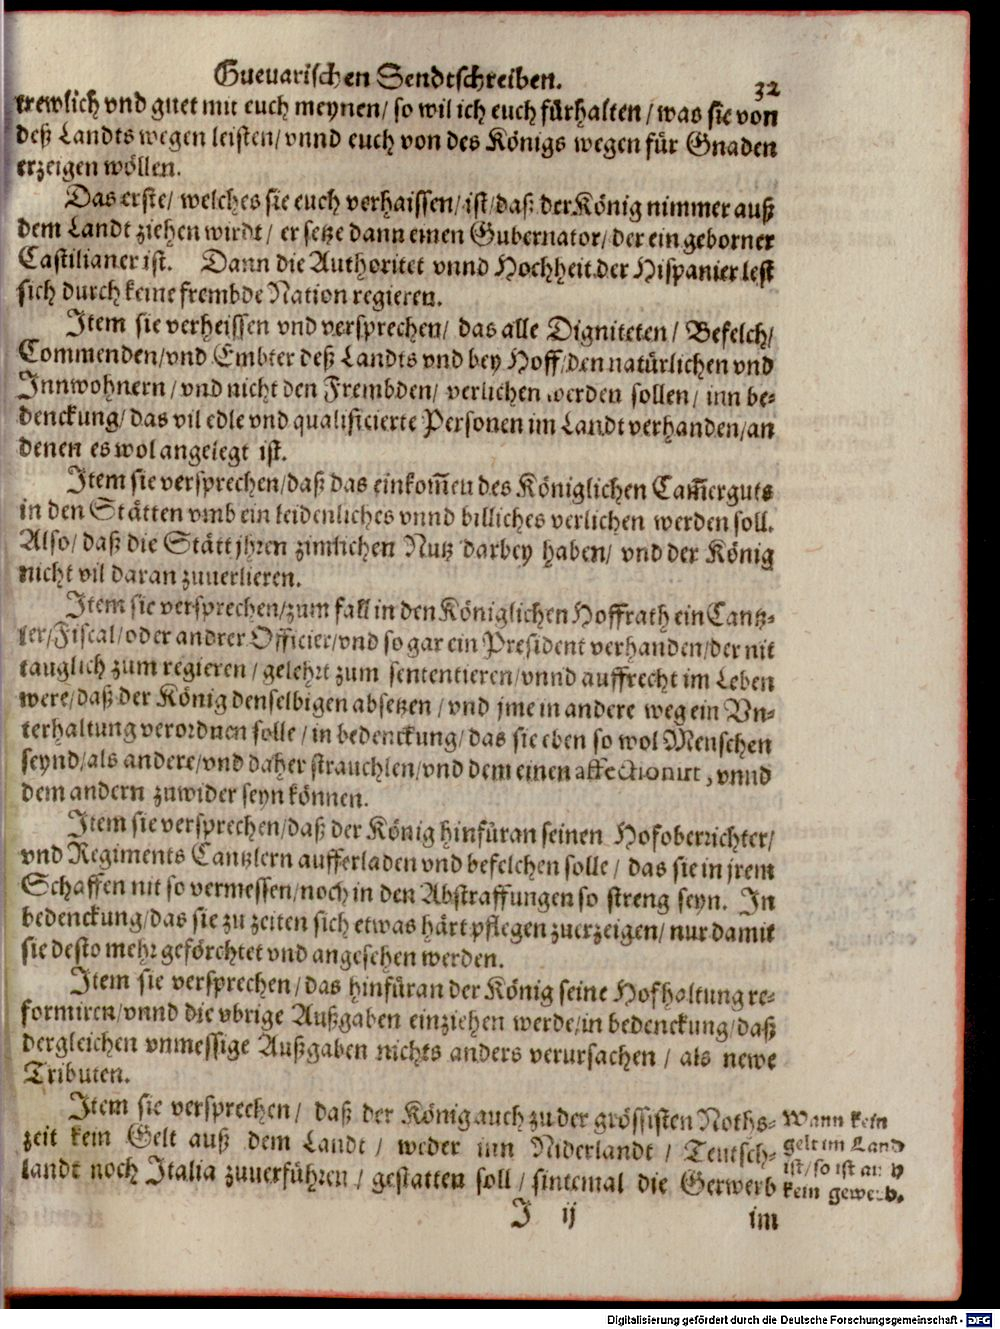 Gueuarischen Sendtschreiben. 32
trewlich vnd guet mit euch meynen/ so wil ich euch fürhalten/ was sie von
deß Landts wegen leisten/ vnnd euch von des Königs wegen für Gnaden
erzeigen wöllen.
Das erste/ welches sie euch verhaissen/ ist/ daß der König nimmer auß
dem Landt ziehen wirdt/ er setze dann einen Gubernator/ der ein geborner
Castilianer ist. Dann die Authoritet vnnd Hochheit der Hispanier lest
sich durch keine frembde Nation regieren.
Item sie verheissen vnd versprechen/ das alle Digniteten/ Befelch/
Commenden/ vnd Embter deß Landts vnd bey Hoff/ den natürlichen vnd
Innwohnern/ vnd nicht den Frembden/ verlichen werden sollen/ inn be-
denckung/ das vil edle vnd qualificierte Personen im Landt verhanden/ an
denen es wol angelegt ist.
Item sie versprechen/ daß das einkom̃en des Königlichen Cam̃erguts
in den Stätten vmb ein leidenliches vnnd billiches verlichen werden soll.
Also/ daß die Stätt jhren zimlichen Nutz darbey haben/ vnd der König
nicht vil daran zuuerlieren.
Item sie versprechen/ zum fall in den Königlichen Hoffrath ein Cantz-
ler/ Fiscal/ oder andrer Officier/ vnd so gar ein President verhanden/ der nit
tauglich zum regieren/ gelehrt zum sententieren/ vnnd auffrecht im Leben
were/ daß der König denselbigen absetzen/ vnd jme in andere weg ein Vn-
terhaltung verordnen solle/ in bedenckung/ das sie eben so wol Menschen
seynd/ als andere/ vnd daher strauchlen/ vnd dem einen affectionirt, vnnd
dem andern zuwider seyn können.
Item sie versprechen/ daß der König hinfüran seinen Hofoberrichter/
vnd Regiments Cantzlern aufferladen vnd befelchen solle/ das sie in jrem
Schaffen nit so vermessen/ noch in den Abstraffungen so streng seyn. In
bedenckung/ das sie zu zeiten sich etwas härt pflegen zuerzeigen/ nur damit
sie desto mehr geförchtet vnd angesehen werden.
Item sie versprechen/ das hinfüran der König seine Hofhaltung re-
formiren/ vnnd die vbrige Außgaben einziehen werde/ in bedenckung/ daß
dergleichen vnmessige Außgaben nichts anders verursachen/ als newe
Tributen.
Item sie versprechen/ daß der König auch zu der grössisten Noths-
zeit kein Gelt auß dem Landt/ weder inn Niderlandt/ Teutsch-
landt noch Italia zuuerführen/ gestatten soll/ sintemal die Gerwerb
Wann kein
gelt im Land
ist/ so ist auch
kein gewerb.
I ij im
Digitalisierung gefördert durch die Deutsche Forschungsgemeinschaft - DFG